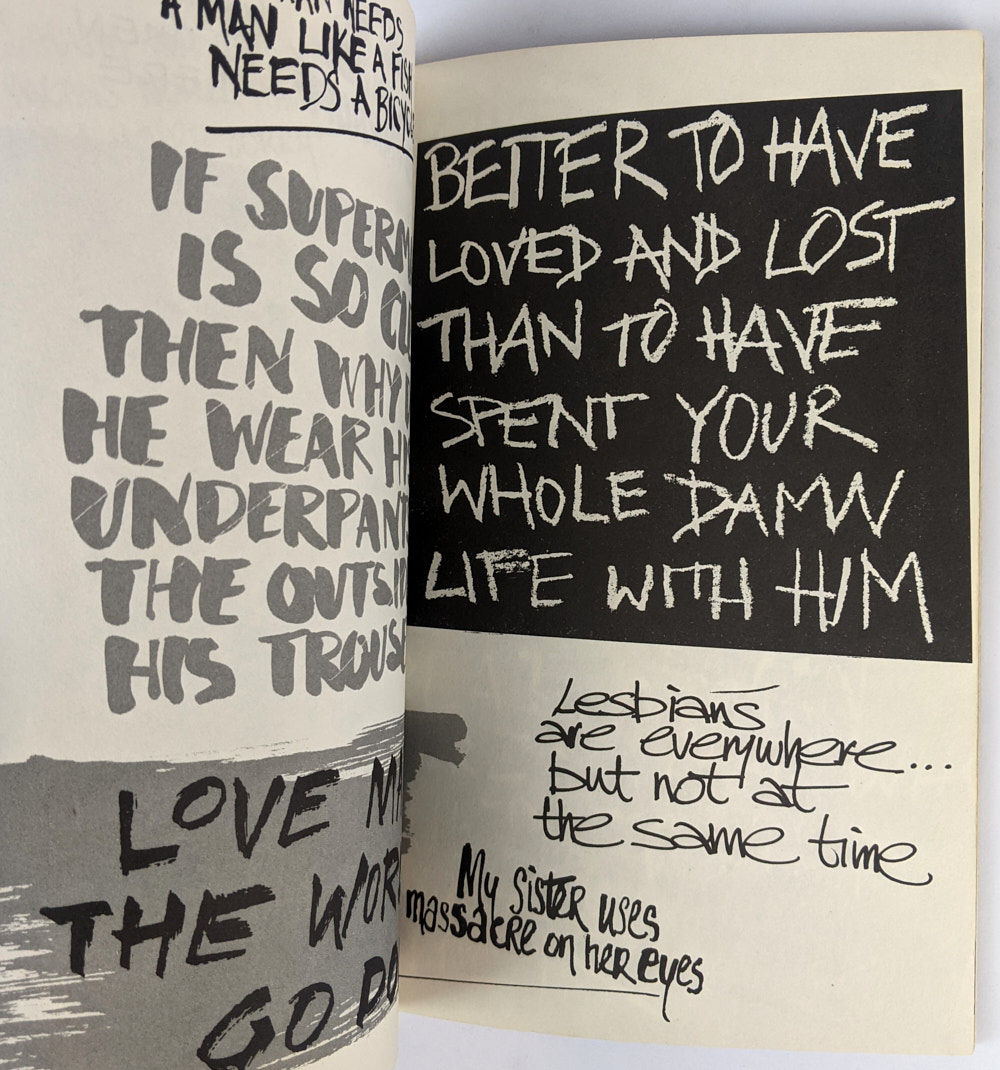 NEEDS
A MAN LIKE A FISH
NEEDS A BICYC
IF SUPERM
IS SO CL
THEN WHY
HE WEAR H
UNDERPANT
THE OUTSID
HIS TROUS
LOVE M
THE WOR
GO DO
BETTER TO HAVE
LOVED AND LOST
THAN TO HAVE
SPENT YOUR
WHOLE DAMN
LIFE WITH HIM
Lesbians
are everywhere...
but not at
the same time
My sister uses
massacre on her eyes